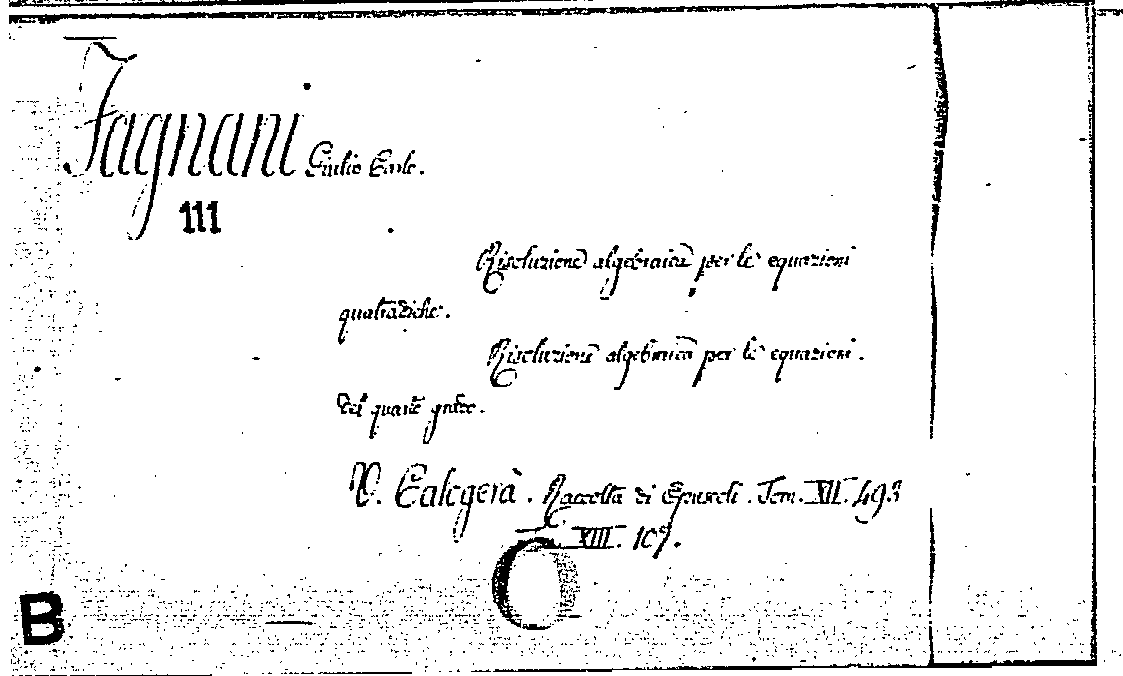 Fagnani Giulio Carlo.
111
Risoluzione algebraica per le equazioni
quatradiche.
Risoluzione algebraica per le equazioni.
del quarto grado.
V. Calogerà. Raccolta di Opuscoli. Tom. XII. 493
XIII. 107.
B